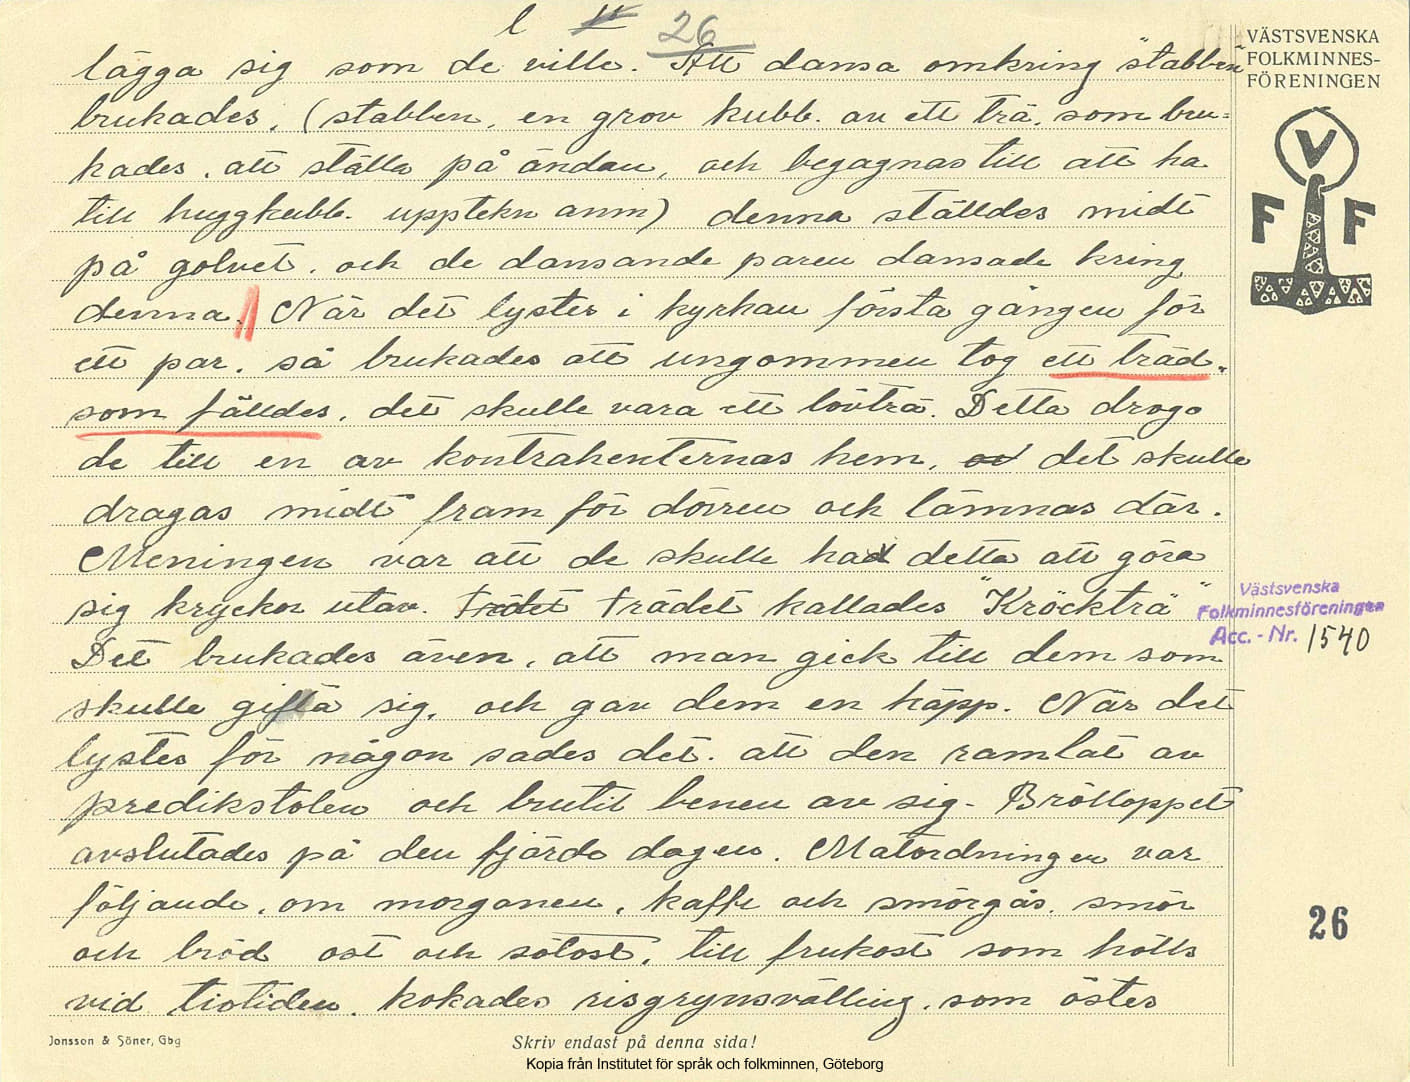 26
VÄSTSVENSKA
FOLKMINNES-
FÖRENINGEN
V
F F
lägga sig som de ville. Att dansa omkring "stabben"
brukades, (stabben, en grov kubb. av ett trä, som bru-
kades, att ställa på ändan, och begagnas till att ha
till huggkubb. upptekn anm) denna ställdes midt
på golvet, och de dansande paren dansade kring
denna. När det lystes i kyrkan första gången för
ett par, så brukades att ungommen tog ett träd,
som fälldes, det skulle vara ett lövträ. Detta drogo
de till en av kontrahenternas hem, det skulle
dragas midt fram för dörren och lämnas där.
Meningen var att de skulle ha detta att göra
sig kryckor utav. Trädet trädet kallades "Kröckträ"
Det brukades även, att man gick till dem som
skulle gifta sig, och gav dem en käpp. När det
lystes för någon sades det, att den ramlat av
predikstolen och brutit benen av sig. Brölloppet
avslutades på den fjärde dagen. Matordningen var
följande, om morgonen, kaffe och smörgås, smör
och bröd ost och sötost, till frukost som hölls
vid tiotiden, kokades risgrynsvälling, som östes
Västsvenska
Folkminnesföreningen
Acc. - Nr. 1540
26
Jonsson & Söner, Gbg
Skriv endast på denna sida!
Kopia från Institutet för språk och folkminnen, Göteborg